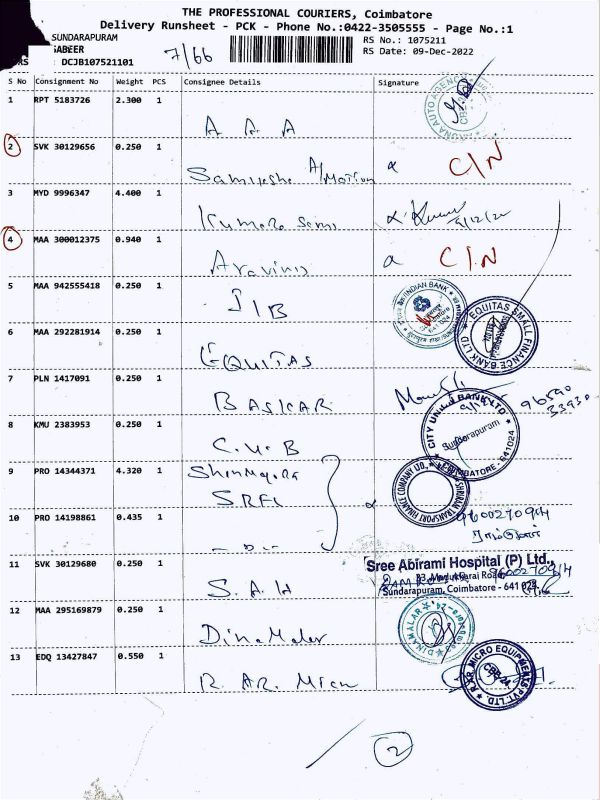 THE PROFESSIONAL COURIERS, Coimbatore
Delivery Runsheet - PCK - Phone No.:0422-3505555 - Page No.:1
SUNDARAPURAM
SABEER
RS : DCJB107521101
7/66
RS No.: 1075211
RS Date: 09-Dec-2022
S No Consignment No Weight PCS Consignee Details Signature
1 RPT 5183726 2.300 1 A A A
2 SVK 30129656 0.250 1 C/N
3 MYD 9996347 4.400 1
4 MAA 300012375 0.940 1 C/N
5 MAA 942555418 0.250 1 I/B INDIAN BANK
6 MAA 292281914 0.250 1 EQUITAS EQUITAS SMALL FINANCE BANK LTD
7 PLN 1417091 0.250 1 BASKAR 96590 33930
8 KMU 2383953 0.250 1 C.U.B CITY UNION BANK LTD. Sundarapuram COIMBATORE - 641 024
9 PRO 14344371 4.320 1 SHRIRAM TRANSPORT FINANCE COMPANY LTD.
10 PRO 14198861 0.435 1 - D - 9600270914
11 SVK 30129680 0.250 1 S.A.H Sree Abirami Hospital (P) Ltd.,
Sundarapuram, Coimbatore - 641 024.
12 MAA 295169879 0.250 1 DinaMalar DINAMALAR
13 EDQ 13427847 0.550 1 R. AR. Micro R.A.R. MICRO EQUIPMENTS PVT. LTD.
2